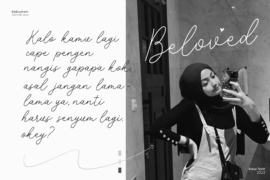 Kalo kamu lagi
cape pengen
nangis gapapa kok,
asal jangan lama
lama ya, nanti
harus senyum lagi,
okey?
Beloved
2023